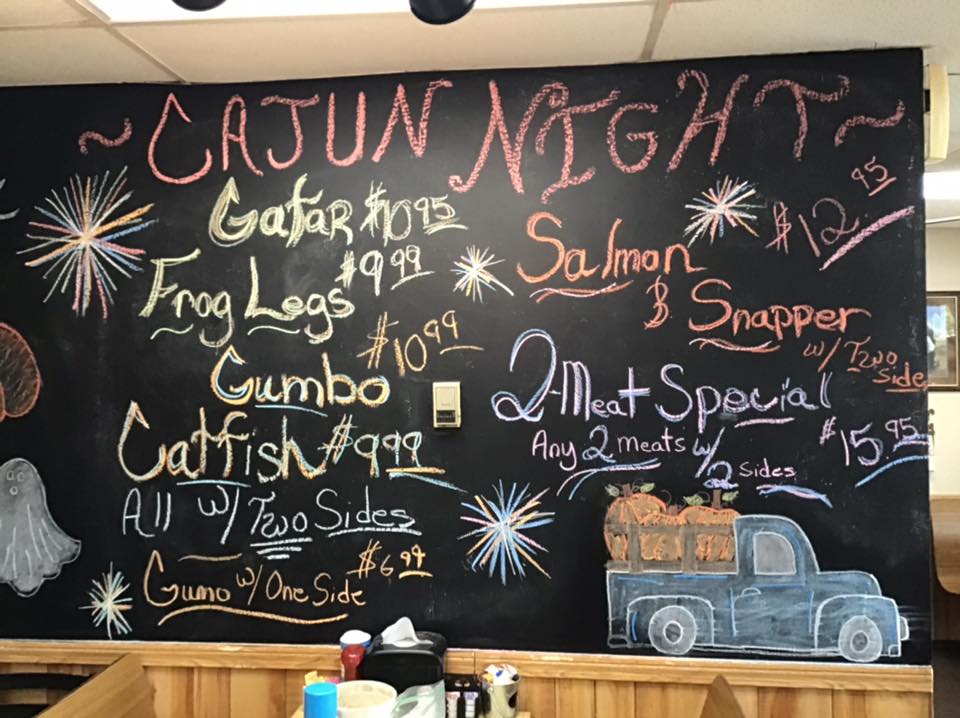 ~ CAJUN NIGHT ~
Gatar $10.95
Frog Legs $9.99
Gumbo $10.99
Catfish $9.99
All w/ Two Sides
Gumo w/ One Side $6.99
$12.95
Salmon
& Snapper
w/ Two
Side
2-Meat Special
Any 2 meats w/
2 Sides
$15.95